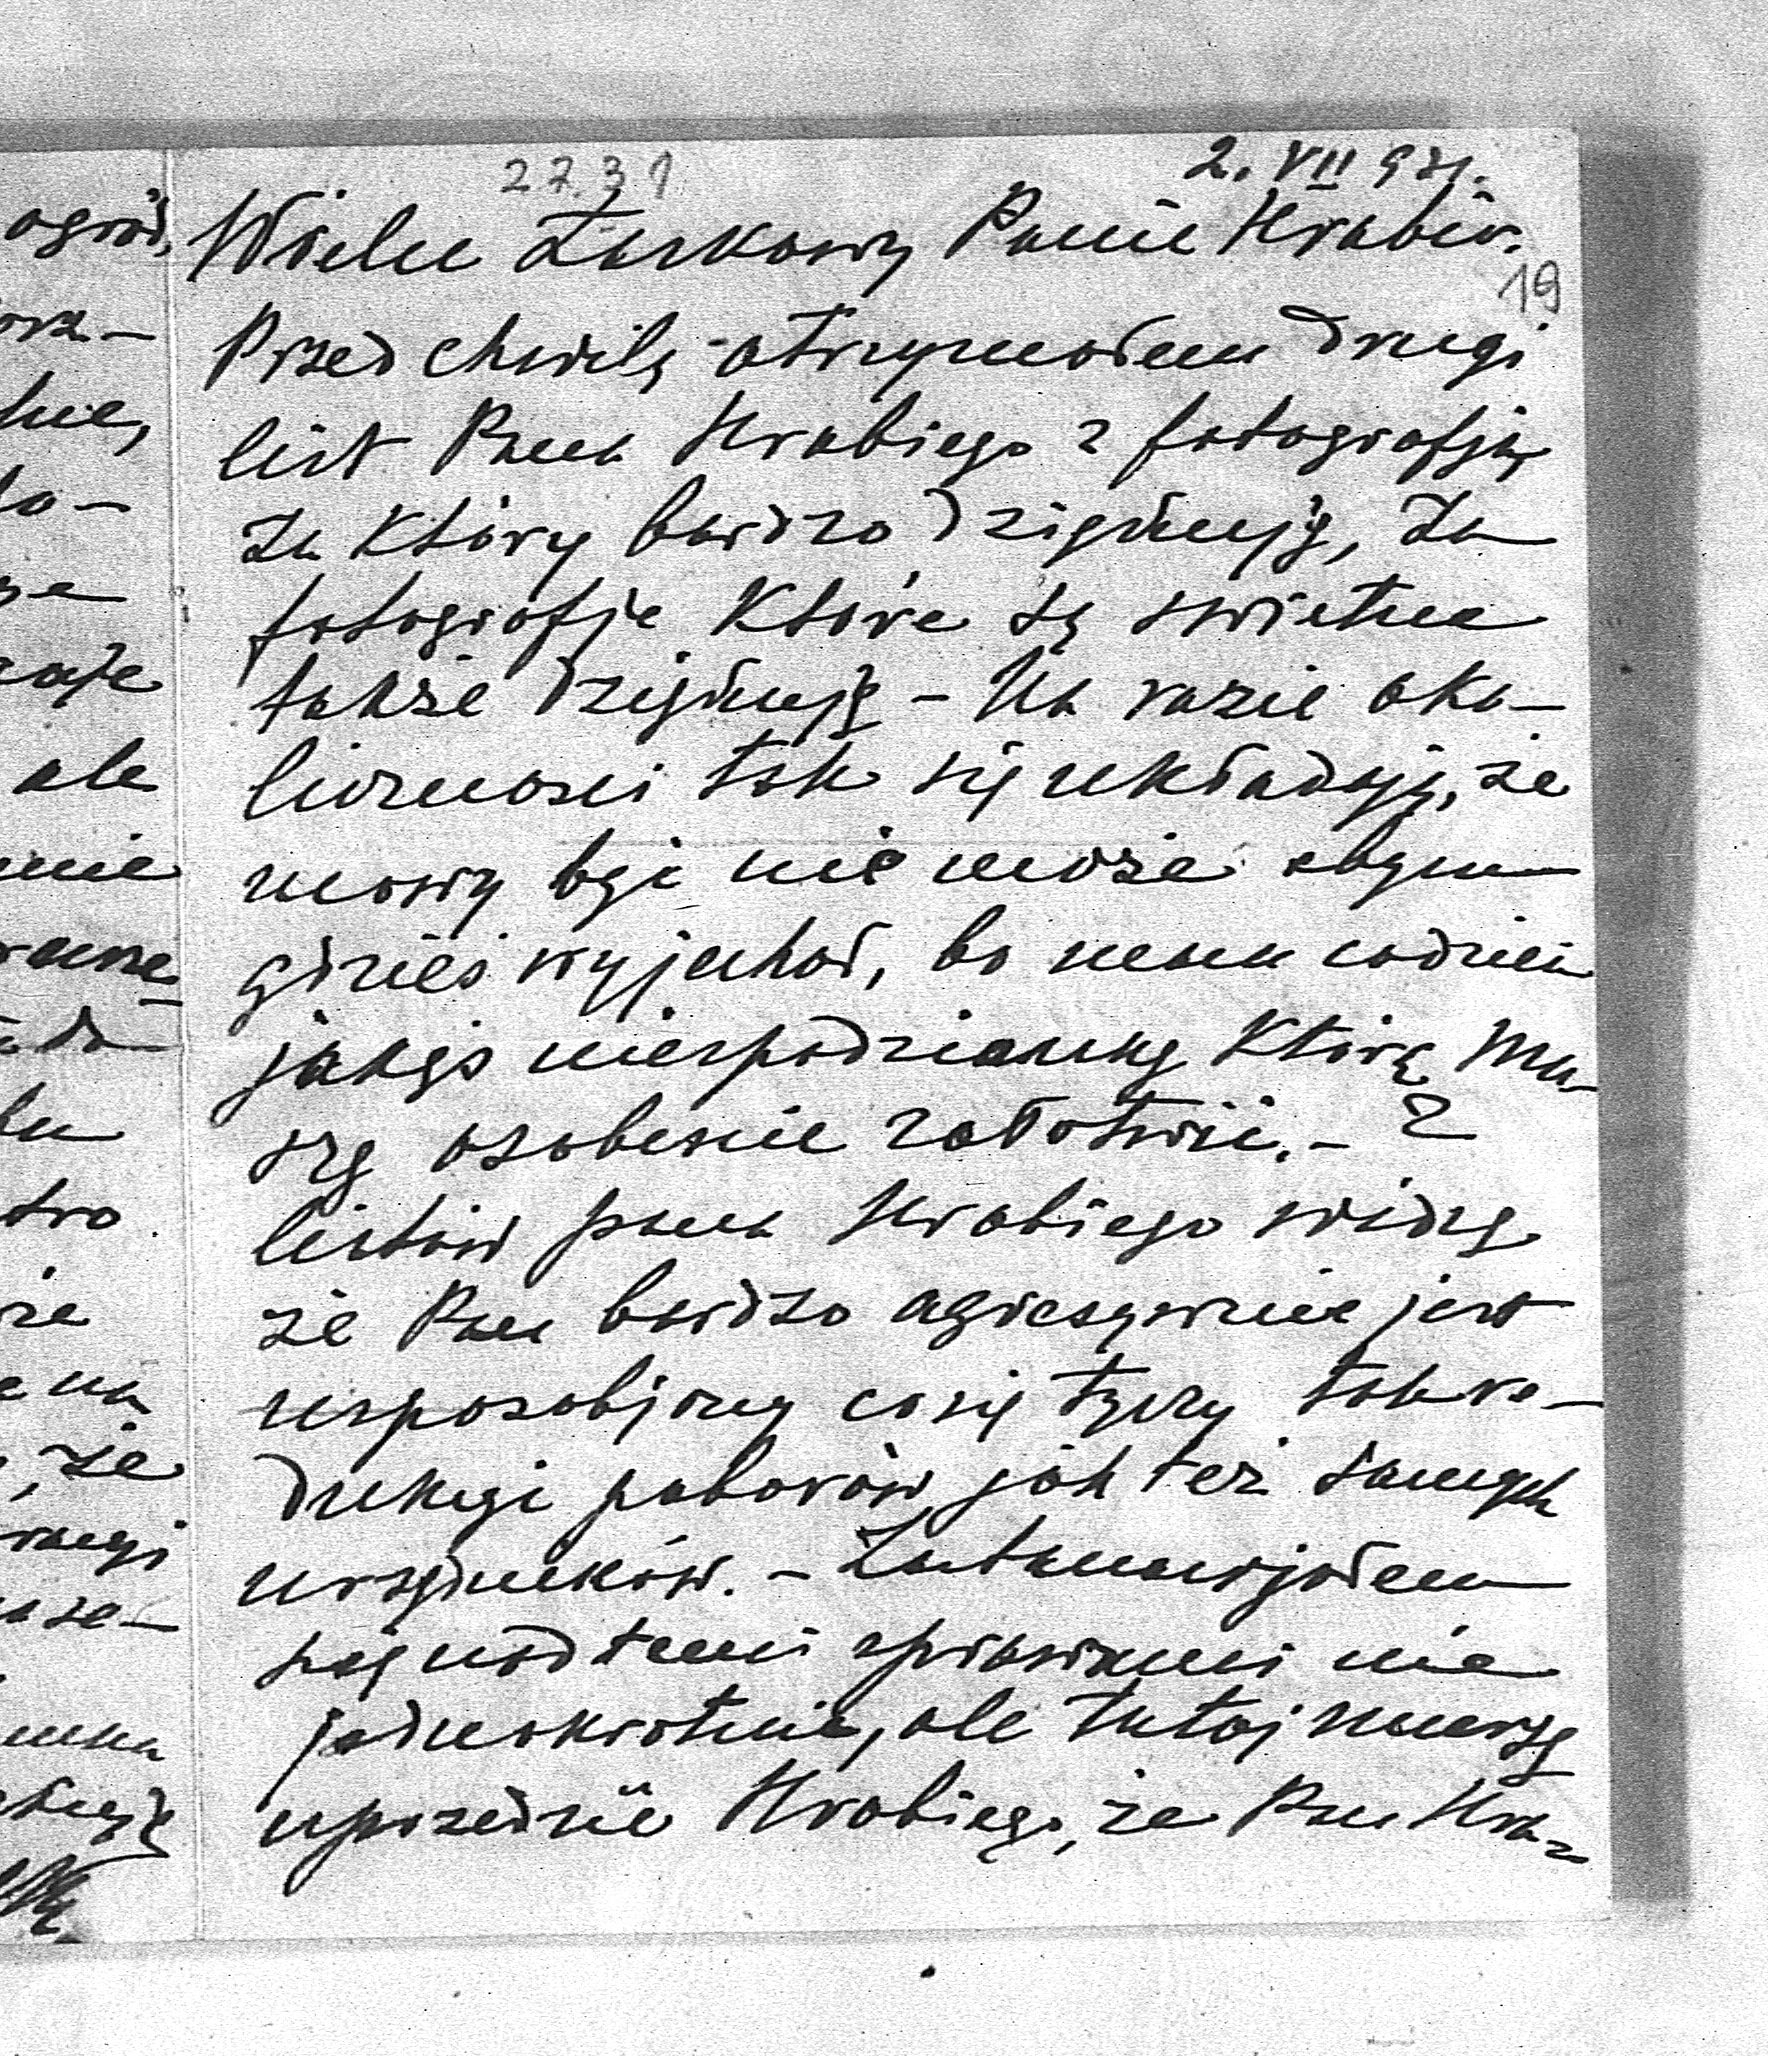 2.VII 931.
22.31
Wielce Łaskawy Panie Hrabio.
19
Przed chwilą otrzymałem drugi
list Pana Hrabiego z fotografją
za który bardzo dziękuję, za
fotografje które są świetne
także dziękuję – Na razie oko–
liczności tak się układają, że
mowy być nie może abym
gdzieś wyjechał, bo mam codzień
jakąś niespodziankę którą mu-
szę osobiście załatwić. – Z
listów pana Hrabiego widzę
że Pan bardzo agresywnie jest
usposobjony co się tyczy tak re–
dukcji poborów jak też samych
urzędników. – Zastanawjałem
się nad temi sprawami nie
jednokrotnie, ale tutaj muszę
uprzedzić Hrabiego, że Pan Hra-
ogród,
ale
że